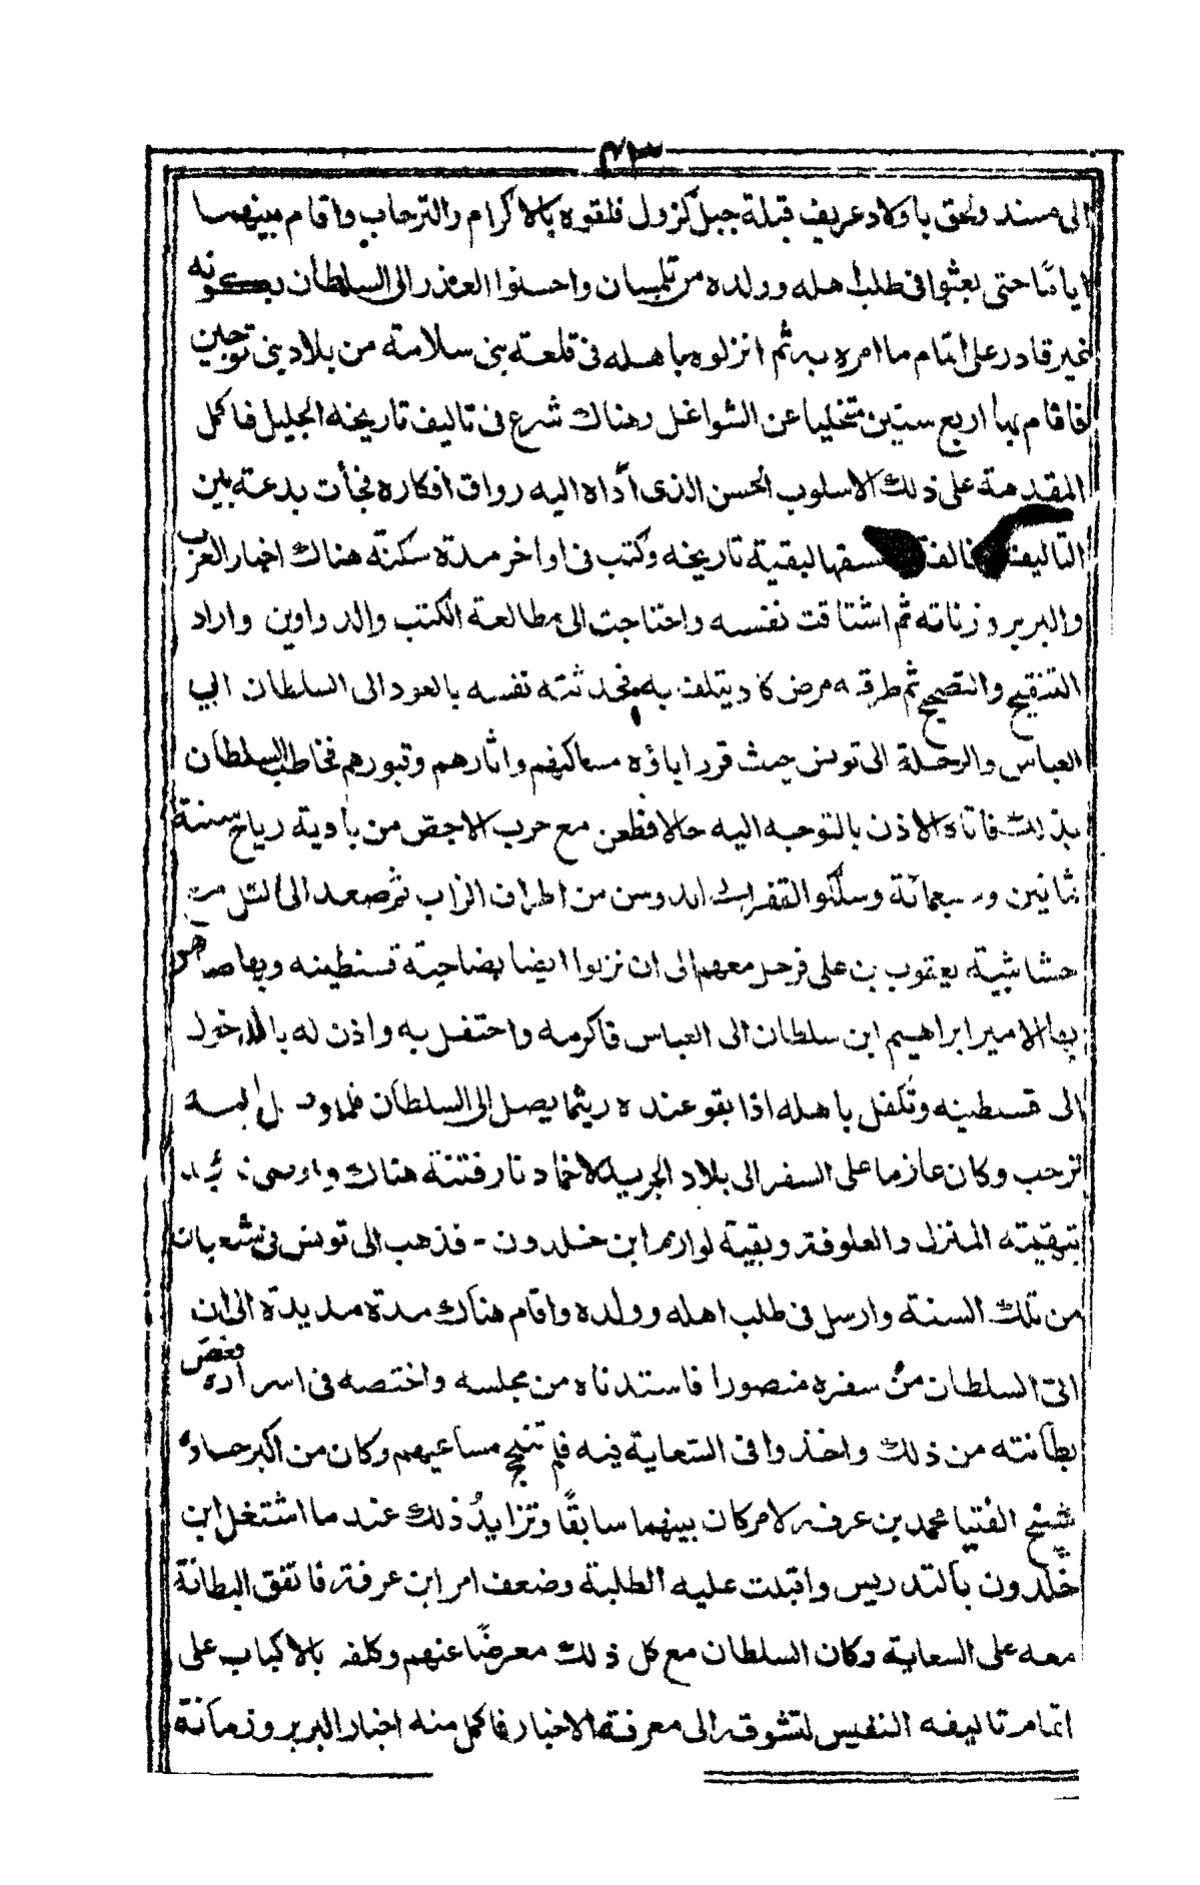 ٤٣
الى مسند ولحق باولاد عريف قبلة جبل كزول فلقوه بالاكرام والترحاب واقام بينهما
اياما حتى بعثوا فى طلب اهله وولده من تلمسان واحسنوا العذر الى السلطان بكونه
غير قادر على اتمام ما امره به ثم انزلوه باهله فى قلعة بنى سلامة من بلاد بنى توجين
فاقام بها اربع سنين متخليا عن الشواغل وهناك شرع فى تاليف تاريخه الجليل فاكمل
المقدمة على ذلك الاسلوب الحسن الذى اداه اليه رواق افكاره فجأت بدعة بين
التاليف لبقية تاريخه وكتب فى اواخر مدة سكنه هناك اخبار العرب
والبربر وزناته ثم اشتاقت نفسه واحتاجت الى مطالعة الكتب والدواوين واراد
التنقيح والتصحيح ثم طرقه مرض كاد يتلف به فحدثته نفسه بالعود الى السلطان ابي
العباس والرحلة الى تونس حيث قرر اباؤه مساكنهم واثارهم وقبورهم فخاطب السلطان
بذلك فاتاه الاذن بالتوجه اليه حالا فظعن مع حرب الاجص من بادية رياح سنة
ثمانين وسبعمائة وسلكو القفر الى الدوسن من اطراف الزاب ثم صعد الى التل مع
حشاشية يعقوب بن على فرحل معهم الى ان نزلوا ايضا بضاحية قسنطينه وبها صاهر
بها الامير ابراهيم ابن سلطان الى العباس فاكرمه واحتفل به واذن له بالدخول
الى قسطينه وتكفل باهله اذا بقو عنده ريثما يصل الى السلطان فلما وصل اليه
ترحب وكان عازما على السفر الى بلاد الجريد لاخماد نار فتنة هناك واوصى
بتهيته المنزل والعلوفة وبقية لوازم ابن خلدون - فذهب الى تونس فى شعبان
من تلك السنة وارسل فى طلب اهله وولده واقام هناك مدة مديدة الى ان
اتى السلطان من سفره منصورا فاستدناه من مجلسه واختصه فى اسراره فغص
بطانته من ذلك واخذوا فى السعاية فيه فلم تنجح مساعيهم وكان من اكبر حساده
شيخ الفتيا محمد بن عرفه لامر كان بينهما سابقًا وتزايدُ ذلك عند ما اشتغل ابن
خلدون بالتدريس واقبلت عليه الطلبة وضعف امر ابن عرفة فاتفق البطانة
معه على السعاية وكان السلطان مع كل ذلك معرضًا عنهم وكلفه بالاكباب على
اتمام تاليفه النفيس لتشوقه الى معرفة الاخبار فاكمل منه اخبار البربر وزمانة